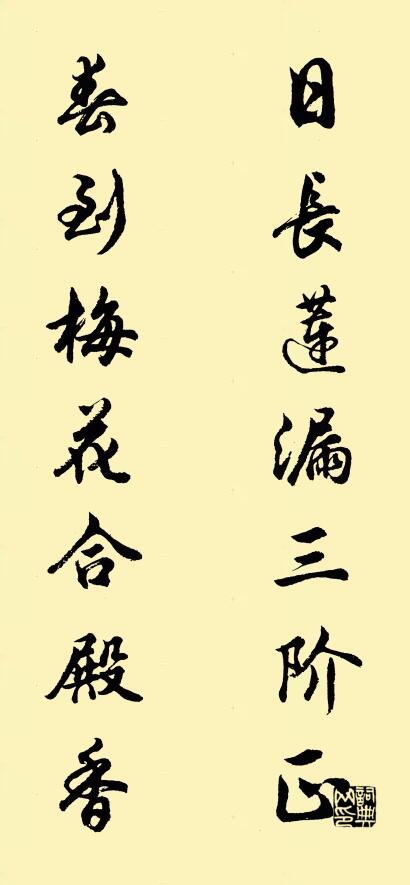 日長蓮漏三阶正
春到梅花合殿香
詞典